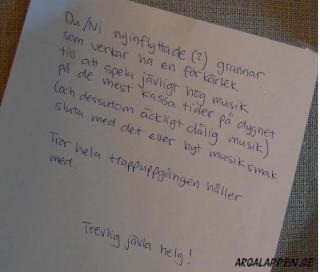 Du/Ni nyinflyttade (?) grannar
som verkar ha en förkärlek
till att spela jävligt hög musik
på de mest kassa tider på dygnet
(och dessutom äckligt dålig musik)
sluta med det eller byt musiksmak
Tror hela trappuppgången håller
med.
Trevlig jävla helg!
ARGALAPPEN.SE